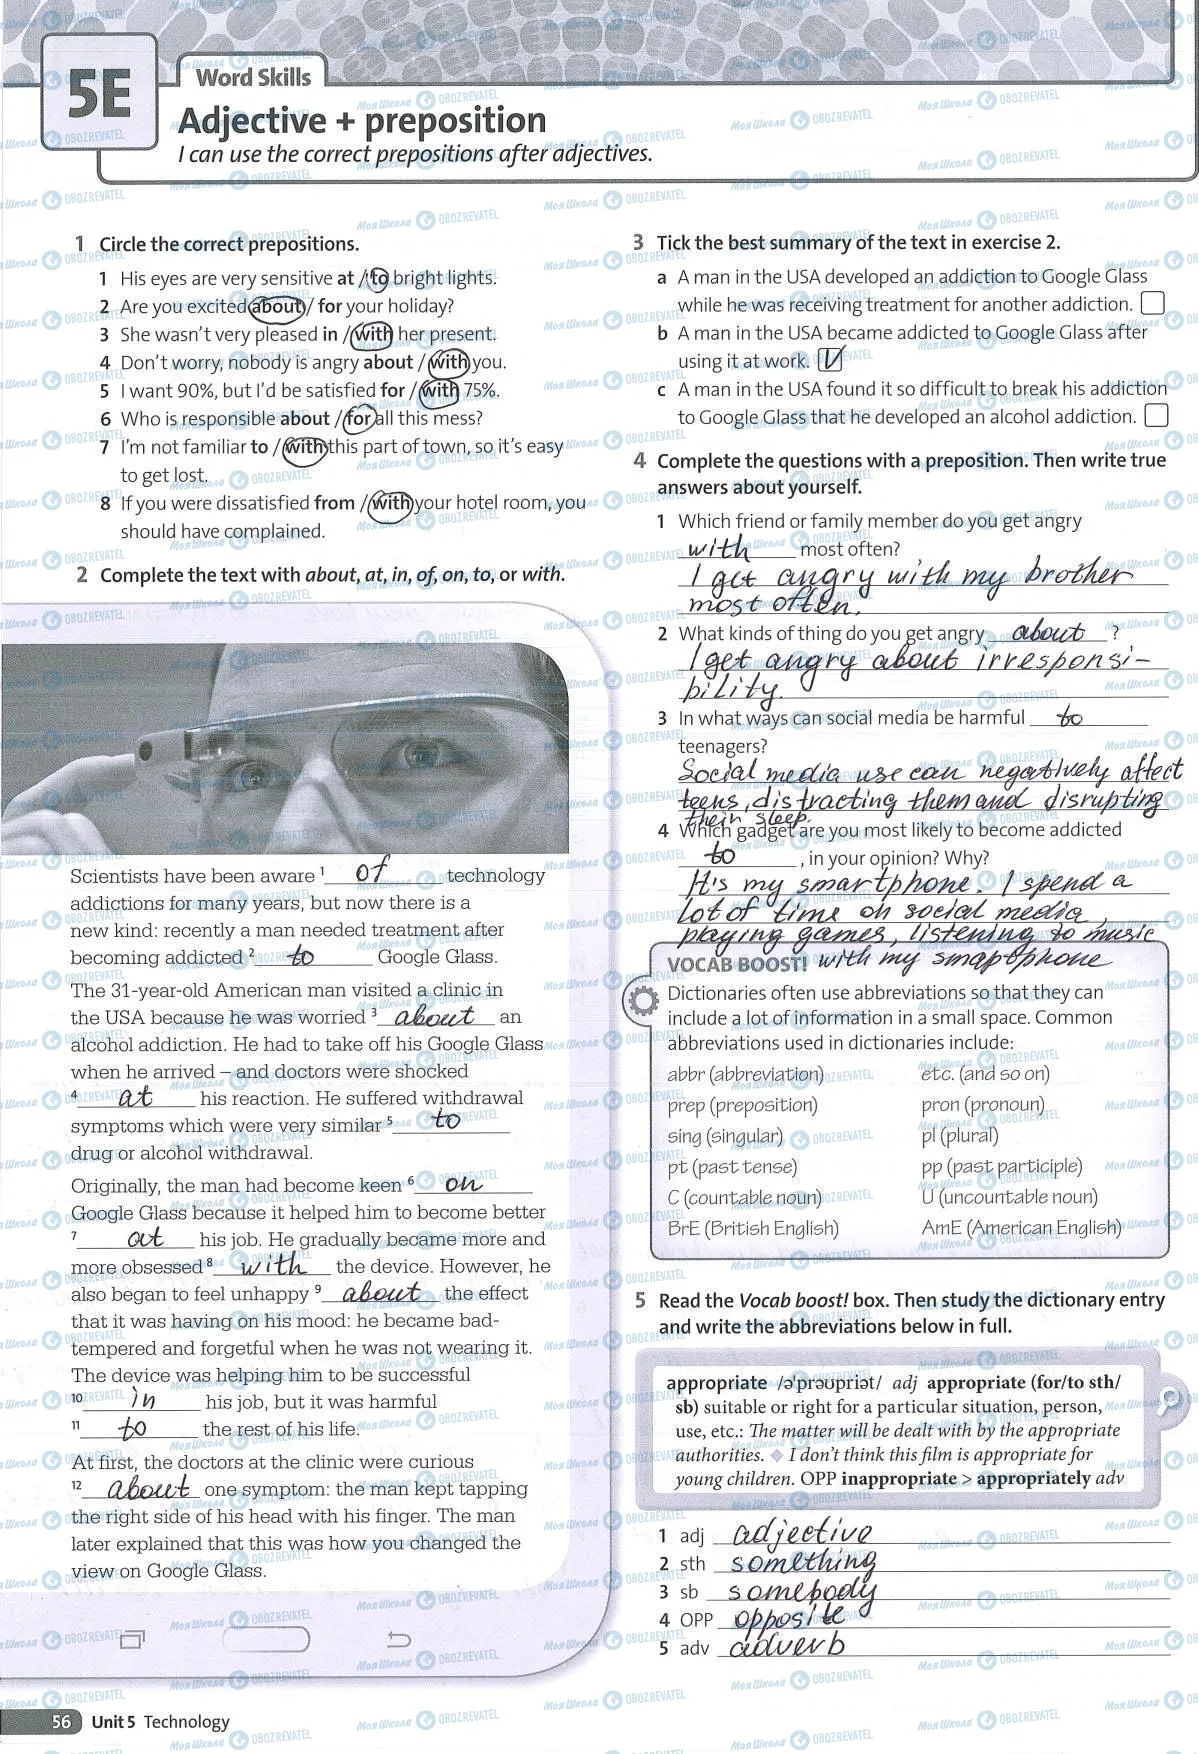 5E
Word Skills
Adjective + preposition
I can use the correct prepositions after adjectives.
1 Circle the correct prepositions.
1 His eyes are very sensitive at / to bright lights.
2 Are you excited about / for your holiday?
3 She wasn't very pleased in / with her present.
4 Don't worry, nobody is angry about / with you.
5 I want 90%, but I'd be satisfied for / with 75%.
6 Who is responsible about / for all this mess?
7 I'm not familiar to / with this part of town, so it's easy
to get lost.
8 If you were dissatisfied from / with your hotel room, you
should have complained.
2 Complete the text with about, at, in, of, on, to, or with.
Scientists have been aware 1 of technology
addictions for many years, but now there is a
new kind: recently a man needed treatment after
becoming addicted 2 to Google Glass.
The 31-year-old American man visited a clinic in
the USA because he was worried 3 about an
alcohol addiction. He had to take off his Google Glass
when he arrived – and doctors were shocked
4 at his reaction. He suffered withdrawal
symptoms which were very similar 5 to
drug or alcohol withdrawal.
Originally, the man had become keen 6 on
Google Glass because it helped him to become better
7 at his job. He gradually became more and
more obsessed 8 with the device. However, he
also began to feel unhappy 9 about the effect
that it was having on his mood: he became bad-
tempered and forgetful when he was not wearing it.
The device was helping him to be successful
10 in his job, but it was harmful
11 to the rest of his life.
At first, the doctors at the clinic were curious
12 about one symptom: the man kept tapping
the right side of his head with his finger. The man
later explained that this was how you changed the
view on Google Glass.
56 Unit 5 Technology
3 Tick the best summary of the text in exercise 2.
a A man in the USA developed an addiction to Google Glass
while he was receiving treatment for another addiction.
b A man in the USA became addicted to Google Glass after
using it at work. V
c A man in the USA found it so difficult to break his addiction
to Google Glass that he developed an alcohol addiction.
4 Complete the questions with a preposition. Then write true
answers about yourself.
1 Which friend or family member do you get angry
with most often?
I get angry with my brother
most often.
2 What kinds of thing do you get angry about ?
I get angry about irresponsi-
bility.
3 In what ways can social media be harmful to
teenagers?
Social media use can negatively affect
teens, distracting them and disrupting
their sleep.
4 Which gadget are you most likely to become addicted
to , in your opinion? Why?
It's my smartphone. I spend a
lot of time on social media,
playing games, listening to music
with my smartphone
VOCAB BOOST!
Dictionaries often use abbreviations so that they can
include a lot of information in a small space. Common
abbreviations used in dictionaries include:
abbr (abbreviation) etc. (and so on)
prep (preposition) pron (pronoun)
sing (singular) pl (plural)
pt (past tense) pp (past participle)
C (countable noun) U (uncountable noun)
BrE (British English) AmE (American English)
5 Read the Vocab boost! box. Then study the dictionary entry
and write the abbreviations below in full.
appropriate /ə'prəʊpriət/ adj appropriate (for/to sth/
sb) suitable or right for a particular situation, person,
use, etc.: The matter will be dealt with by the appropriate
authorities. ◆ I don't think this film is appropriate for
young children. OPP inappropriate > appropriately adv
1 adj adjective
2 sth something
3 sb somebody
4 OPP opposite
5 adv adverb
Моя Школа OBOZREVATEL